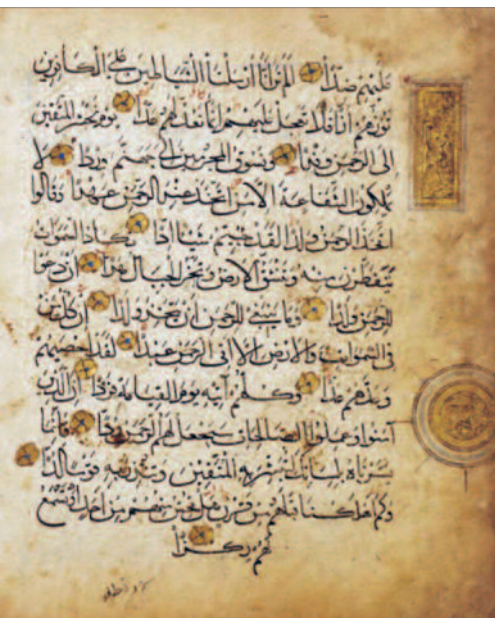 عليهم ضدا الم تر انا ارسلنا الشياطين على الكافرين
تؤزهم ازا فلا تعجل عليهم انما نعد لهم عدا يوم نحشر المتقين
الى الرحمن وفدا ونسوق المجرمين الى جهنم وردا لا
يملكون الشفاعة الا من اتخذ عند الرحمن عهدا وقالوا
اتخذ الرحمن ولدا لقد جئتم شيئا ادا تكاد السموات
يتفطرن منه وتنشق الارض وتخر الجبال هدا ان دعوا
للرحمن ولدا وما ينبغي للرحمن ان يتخذ ولدا ان كل من
في السموات والارض الا اتي الرحمن عبدا لقد احصيهم
وعدهم عدا وكلهم آتيه يوم القيامة فردا ان الذين
آمنوا وعملوا الصالحات سيجعل لهم الرحمن ودا فانما
يسرناه بلسانك لتبشر به المتقين وتنذر به قوما لدا
وكم اهلكنا قبلهم من قرن هل تحس منهم من احد او تسمع
لهم ركزا